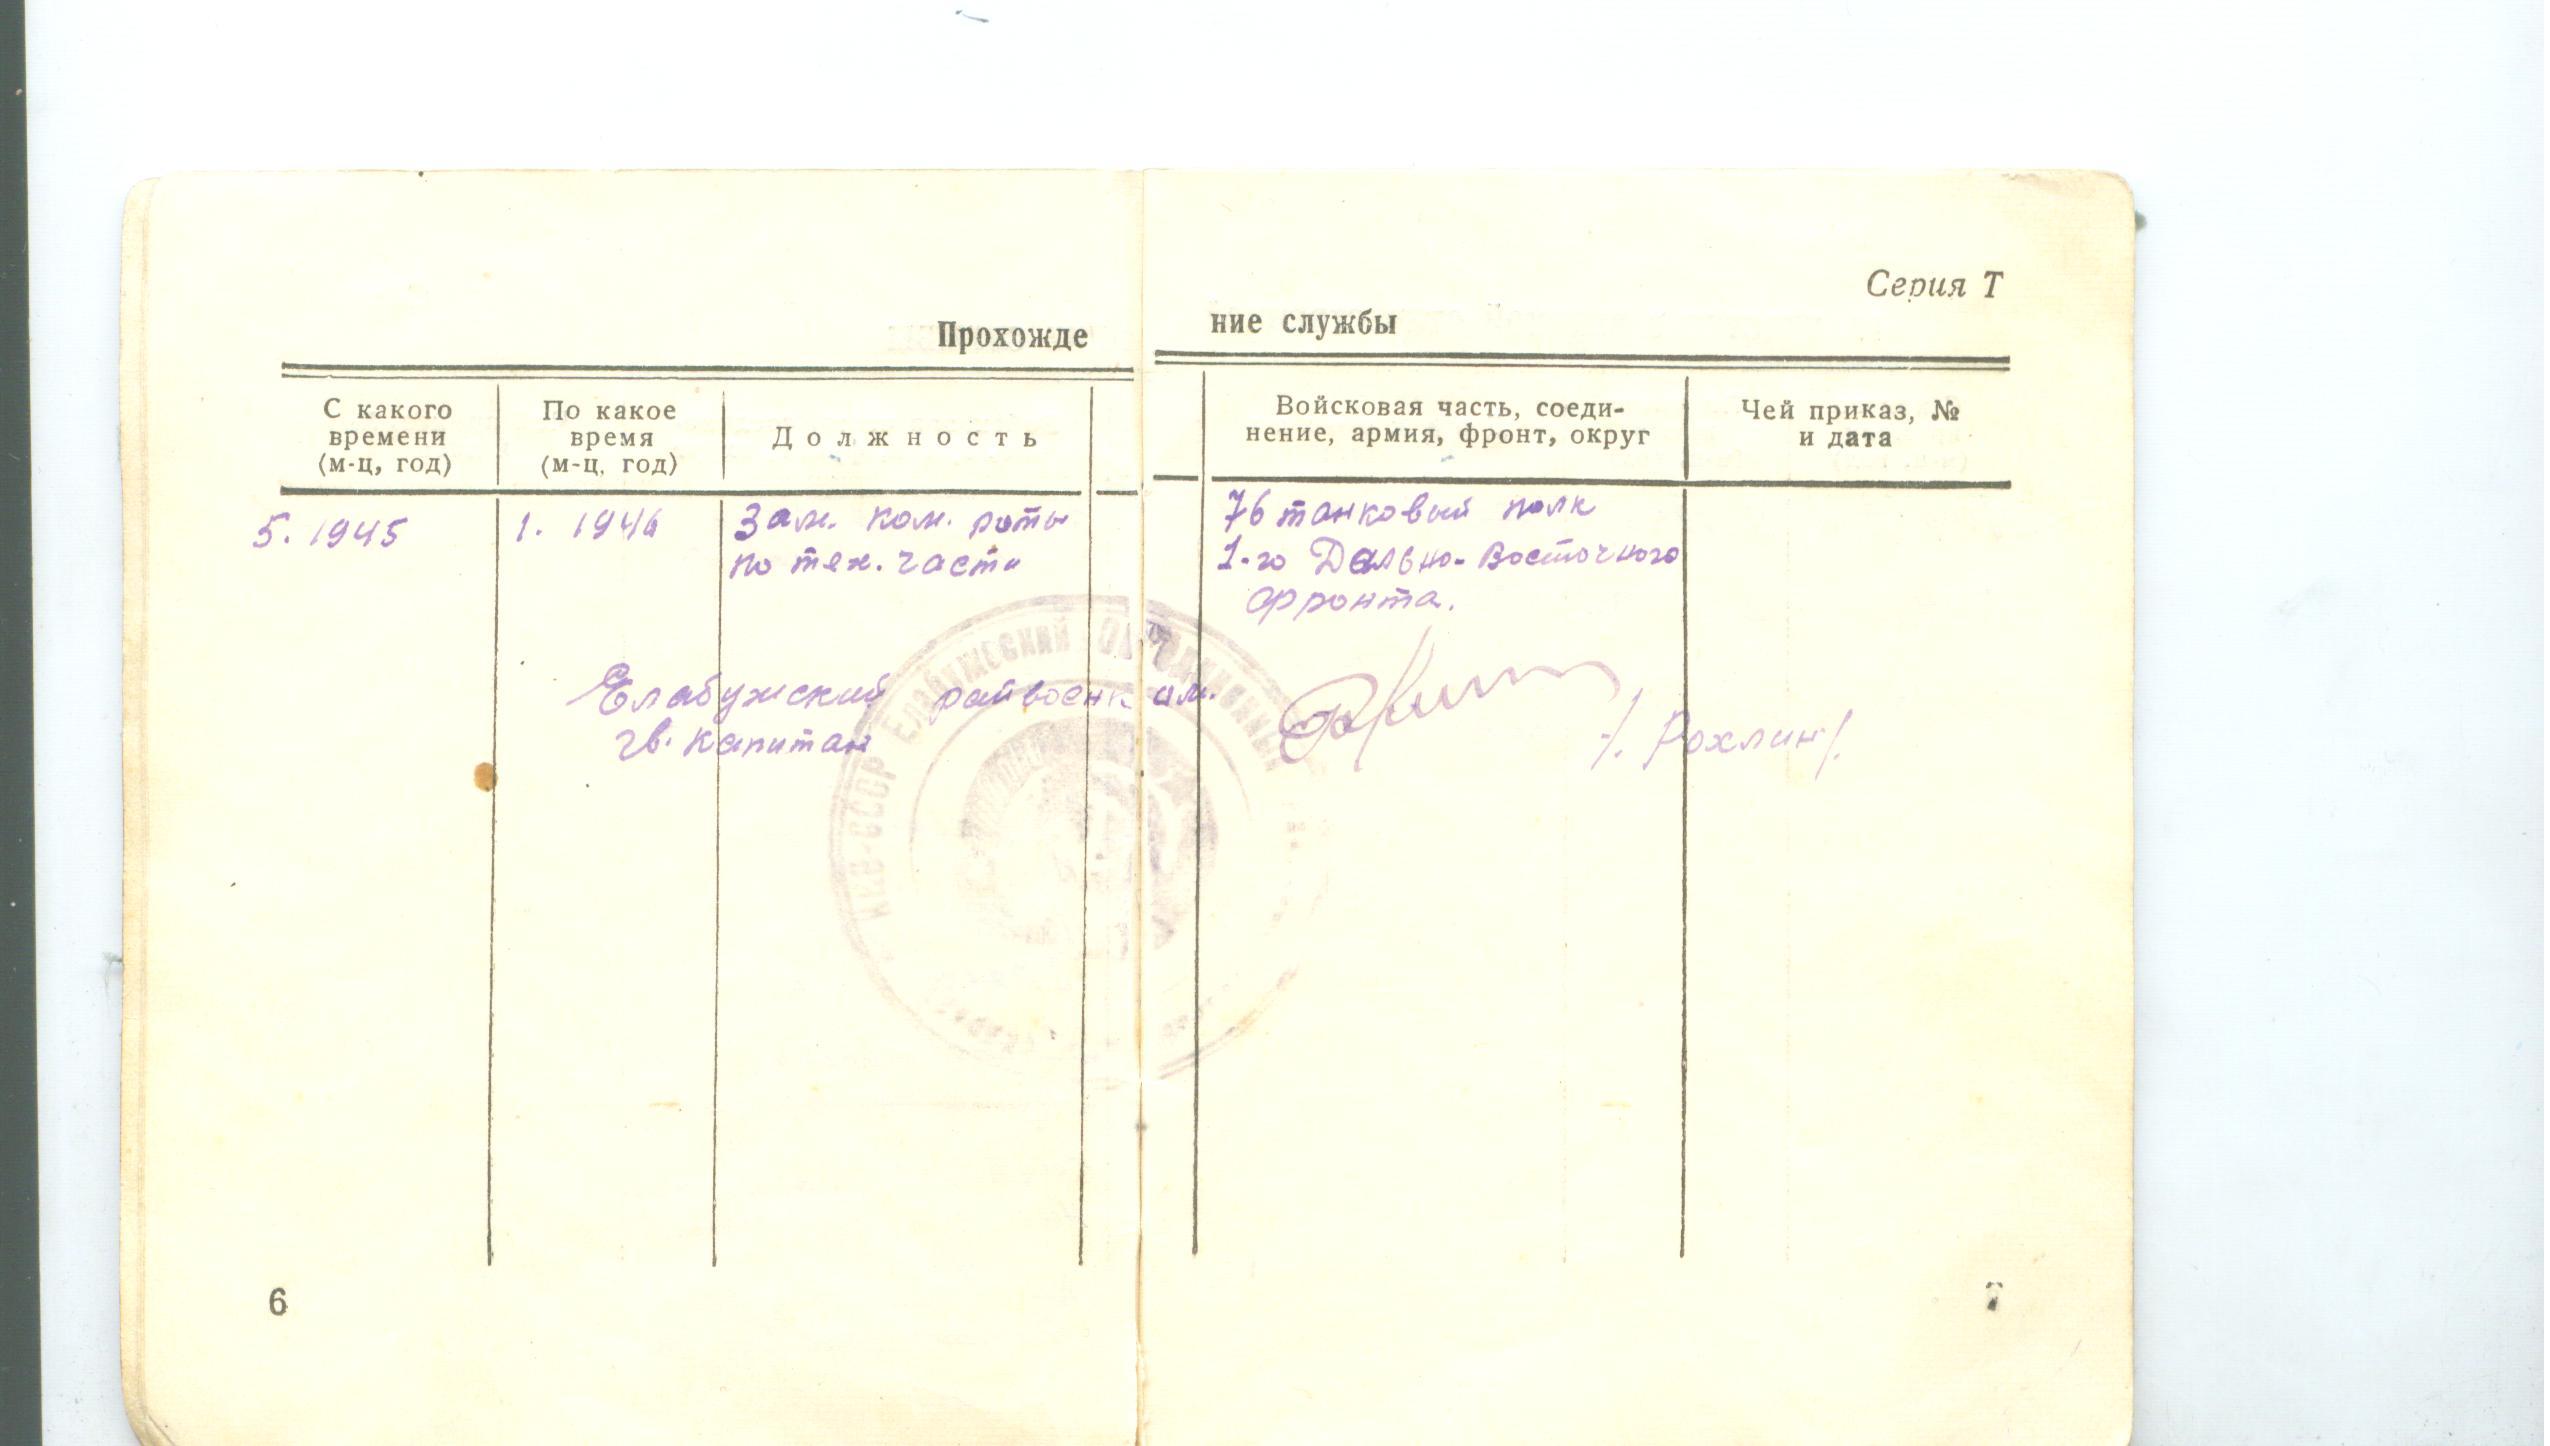 Серия Т
Прохождение службы
С какого времени (м-ц, год)
По какое время (м-ц, год)
Должность
Войсковая часть, соеди-
нение, армия, фронт, округ
Чей приказ, №
и дата
5. 1945
1. 1946
Зам. ком. роты
по тех. части
76 танковый полк
1-го Дально-Восточного
фронта.
Елабужский райвоенком.
гв. капитан
/. Рохлин/.
ЕЛАБУЖСКИЙ
6
7